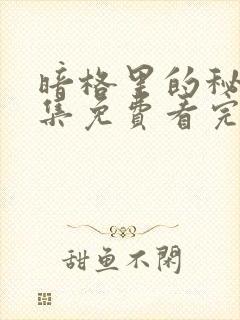 暗格里的秘
集免费看完
甜鱼不闲